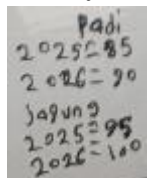 Padi
2025=85
2026=90
Jagung
2025=95
2026=100